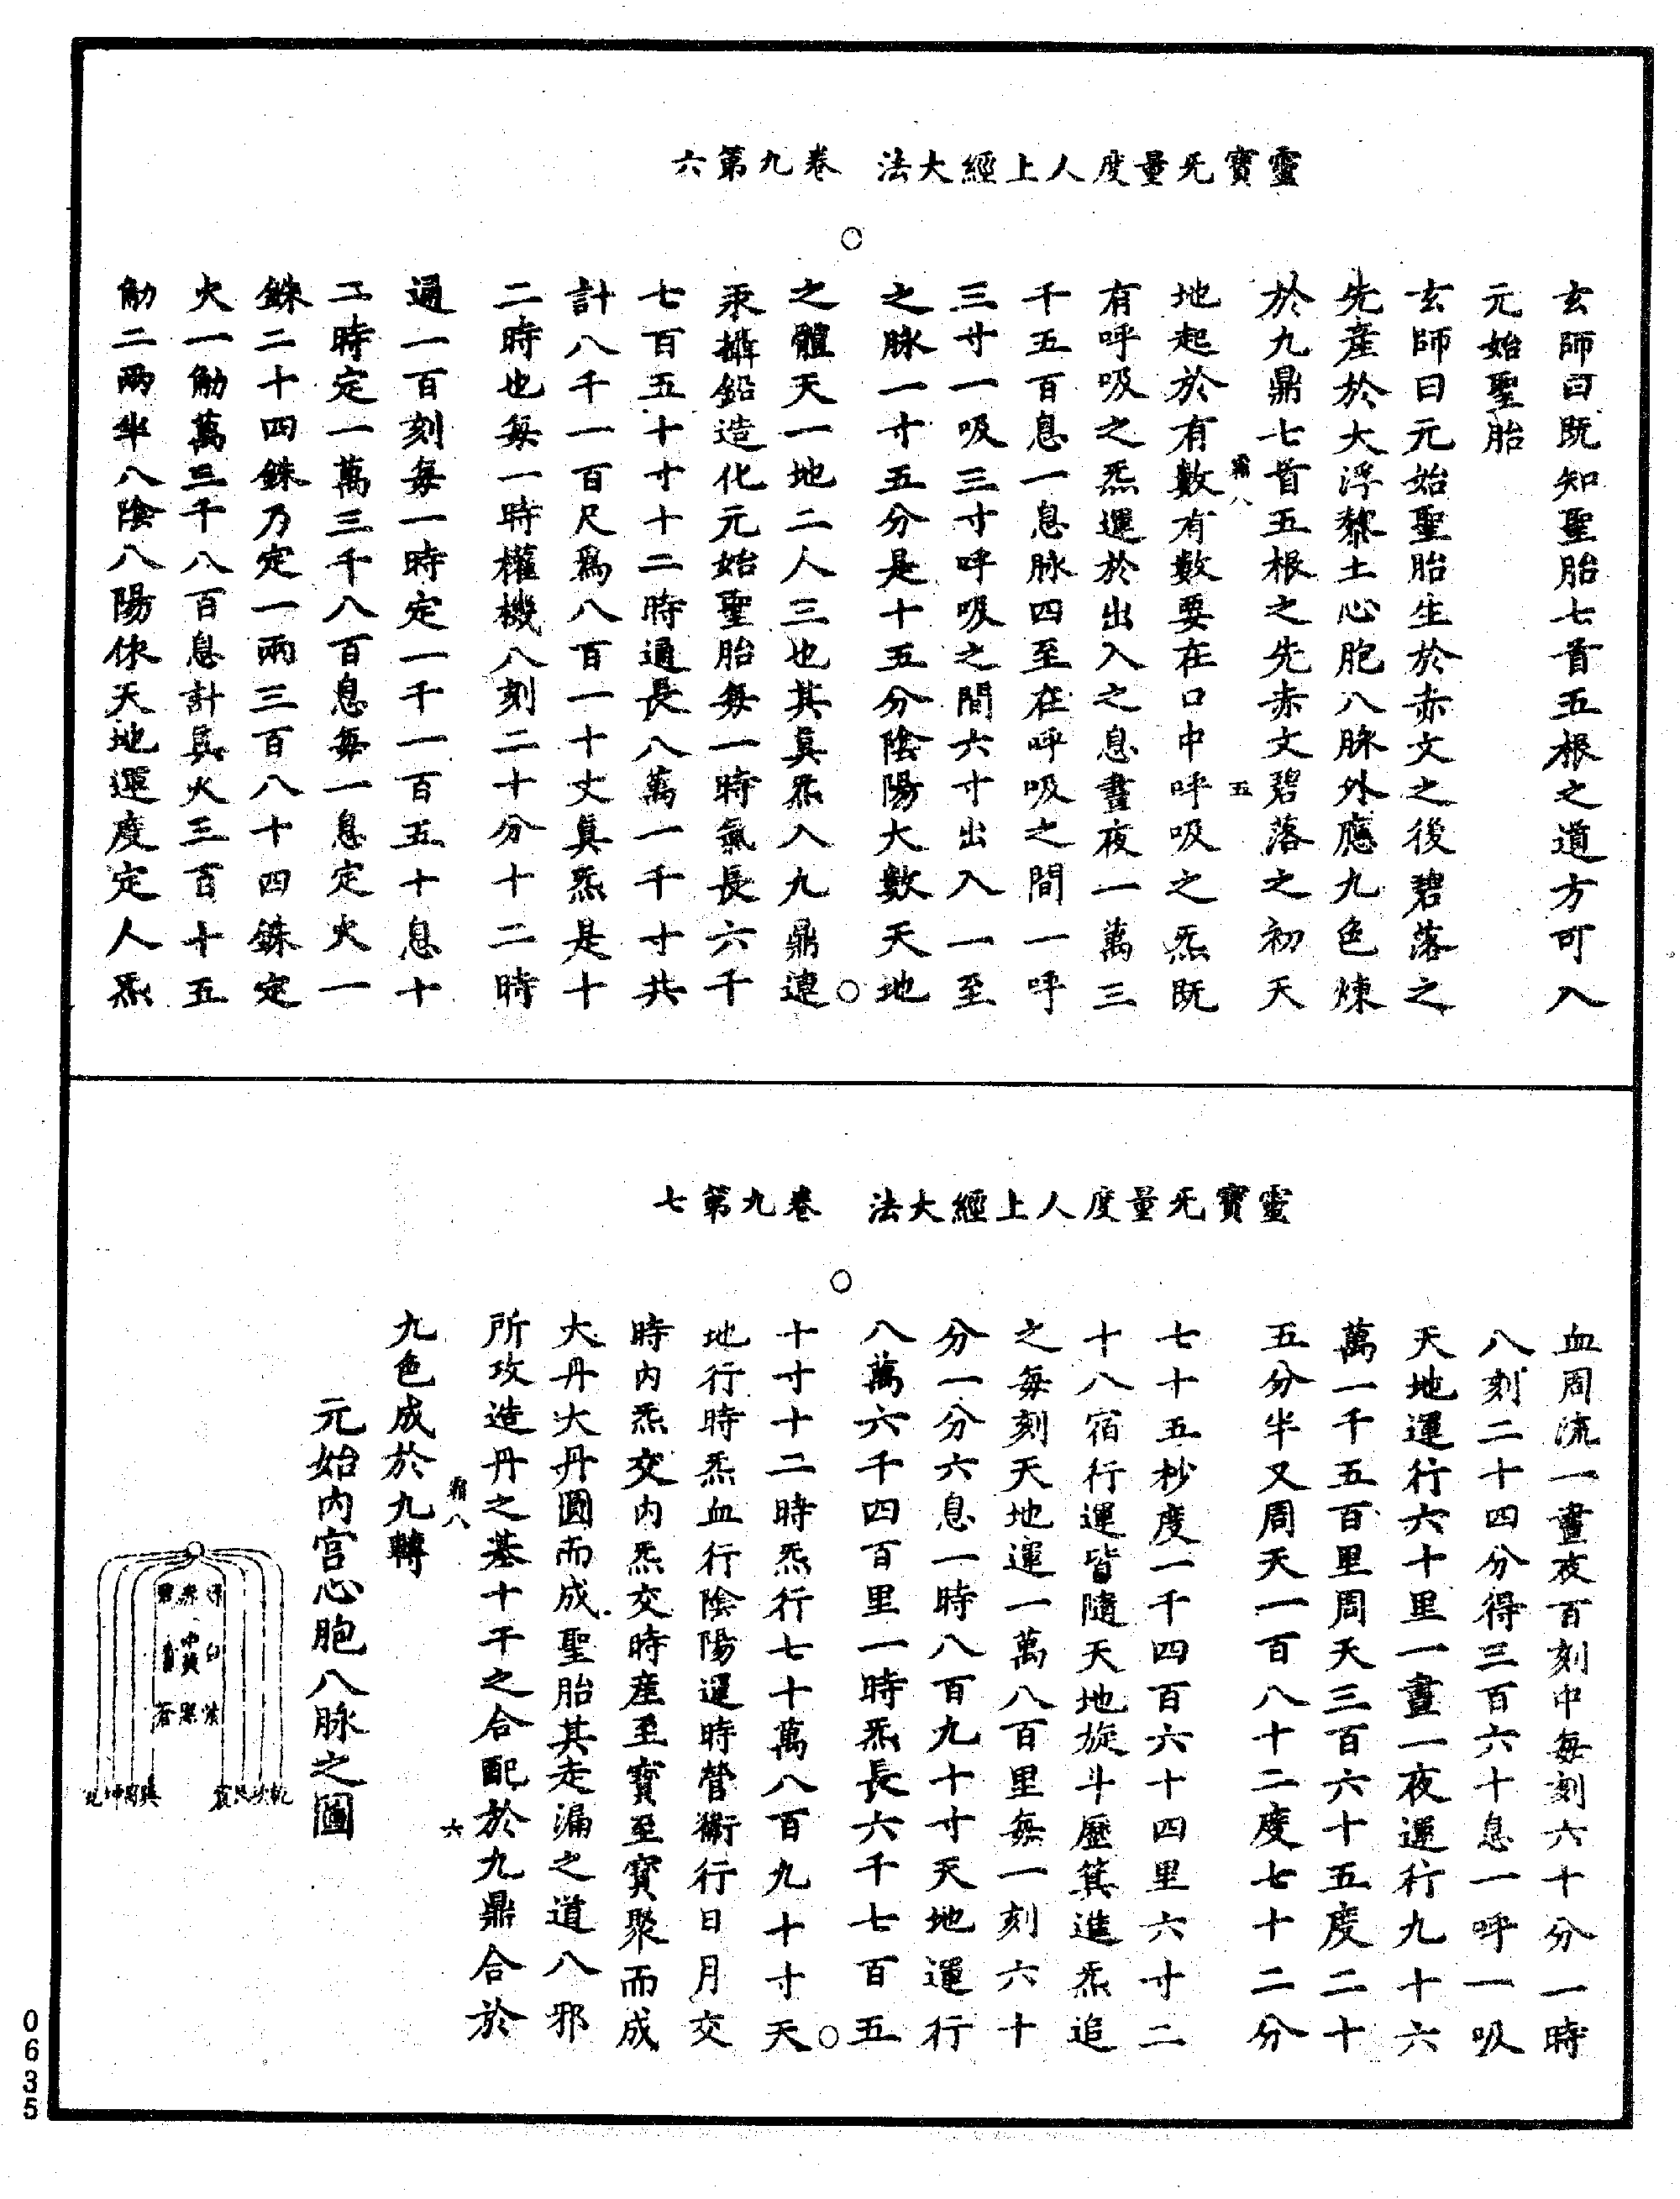 靈寶无量度人上經大法　卷九第六
玄師曰既知聖胎七首五根之道方可入
元始聖胎
玄師曰元始聖胎生於赤文之後碧落之
先產於大浮黎土心胞八脉外應九色煉
於九鼎七首五根之先赤文碧落之初天
霸八　五
地起於有數有數要在口中呼吸之炁既
有呼吸之炁運於出入之息晝夜一萬三
千五百息一息脉四至在呼吸之間一呼
三寸一吸三寸呼吸之間六寸出入一至
之脉一寸五分是十五分陰陽大數天地
之體天一地二人三也其真炁入九鼎運
汞攝鉛造化元始聖胎每一時氣長六千
七百五十寸十二時通長八萬一千寸共
計八千一百尺為八百一十丈真炁是十
二時也每一時權機八刻二十分十二時
通一百刻每一時定一千一百五十息十
二時定一萬三千八百息每一息定火一
銖二十四銖乃定一兩三百八十四銖定
火一觔萬三千八百息計真火三百十五
觔二兩半八陰八陽依天地運度定人炁
靈寶无量度人上經大法　卷九第七
血周流一晝夜百刻中每刻六十分一時
八刻二十四分得三百六十息一呼一吸
天地運行六十里一晝一夜運行九十六
萬一千五百里周天三百六十五度二十
五分半又周天一百八十二度七十二分
七十五杪度一千四百六十四里六寸二
十八宿行運皆隨天地旋斗歷箕進炁追
之每刻天地運一萬八百里每一刻六十
分一分六息一時八百九十寸天地運行
八萬六千四百里一時炁長六千七百五
十寸十二時炁行七十萬八百九十寸天
地行時炁血行陰陽運時營衛行日月交
時內炁交內炁交時產至寶至寶聚而成
大丹大丹圓而成聖胎其走漏之道八邪
所攻造丹之基十干之合配於九鼎合於
霸八　六
九色成於九轉
元始內宮心胞八脉之圖
中黃
白
蒼
乾坎艮震
巽離坤兌
0635